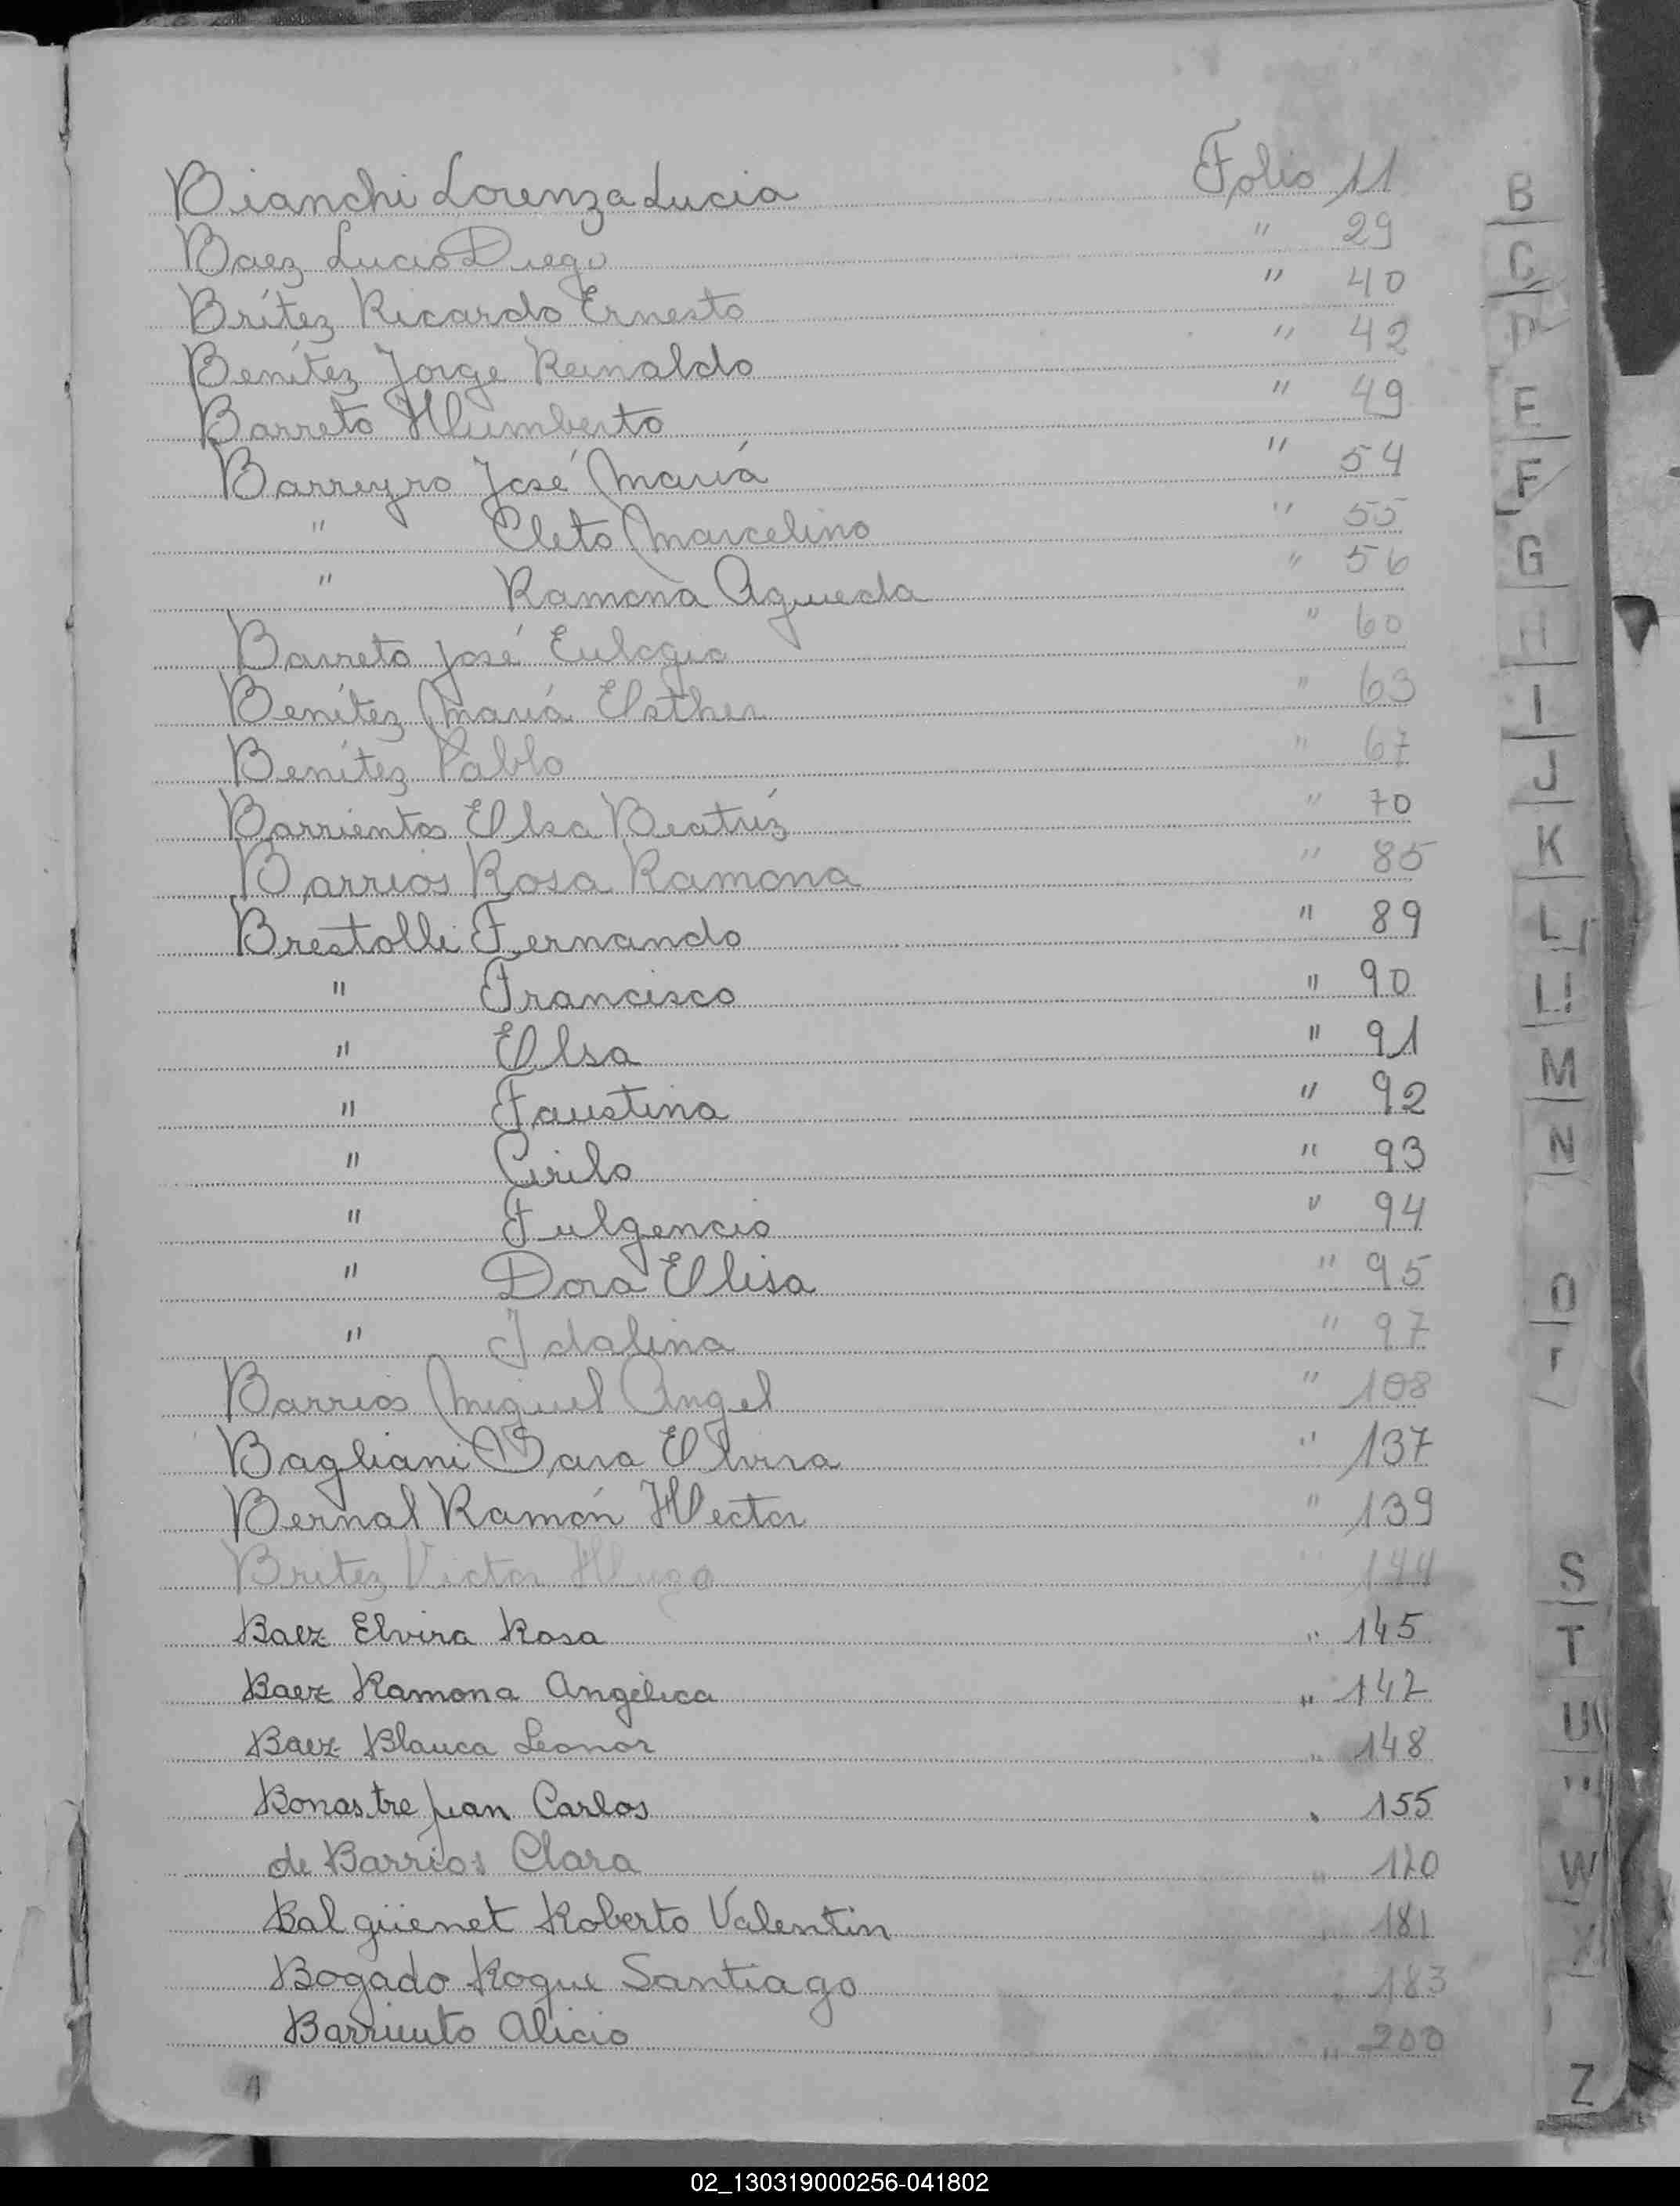 Bianchi Lorenza Lucia Folio 11
Baez Lucio Diego " 29
Brítez Ricardo Ernesto " 40
Benítez Jorge Reinaldo " 42
Barreto Humberto " 49
Barreyro José María " 54
" Cleto Marcelino " 55
" Ramona Agueda " 56
Barreto José Eulogio " 60
Benítez María Esther " 63
Benítez Pablo " 67
Barrientos Elsa Beatríz " 70
Barrios Rosa Ramona " 85
Brestolli Fernando " 89
" Francisco " 90
" Elsa " 91
" Faustina " 92
" Cirilo " 93
" Fulgencio " 94
" Dora Elisa " 95
" Idalina " 97
Barrios Miguel Angel " 108
Bagliani Sara Elvira " 137
Bernal Ramón Hector " 139
Britez Victor Hugo " 144
Baez Elvira Rosa " 145
Baez Ramona Angélica " 147
Baez Blanca Leonor " 148
Bonastre Juan Carlos " 155
de Barrios Clara "
Balgüenet Roberto Valentin " 181
Bogado Roque Santiago " 183
Barriento Alicio " 200
B
C
D
E
F
G
H
I
J
K
L
LL
M
N
O
S
T
U
W
X
Z
02_130319000256-041802